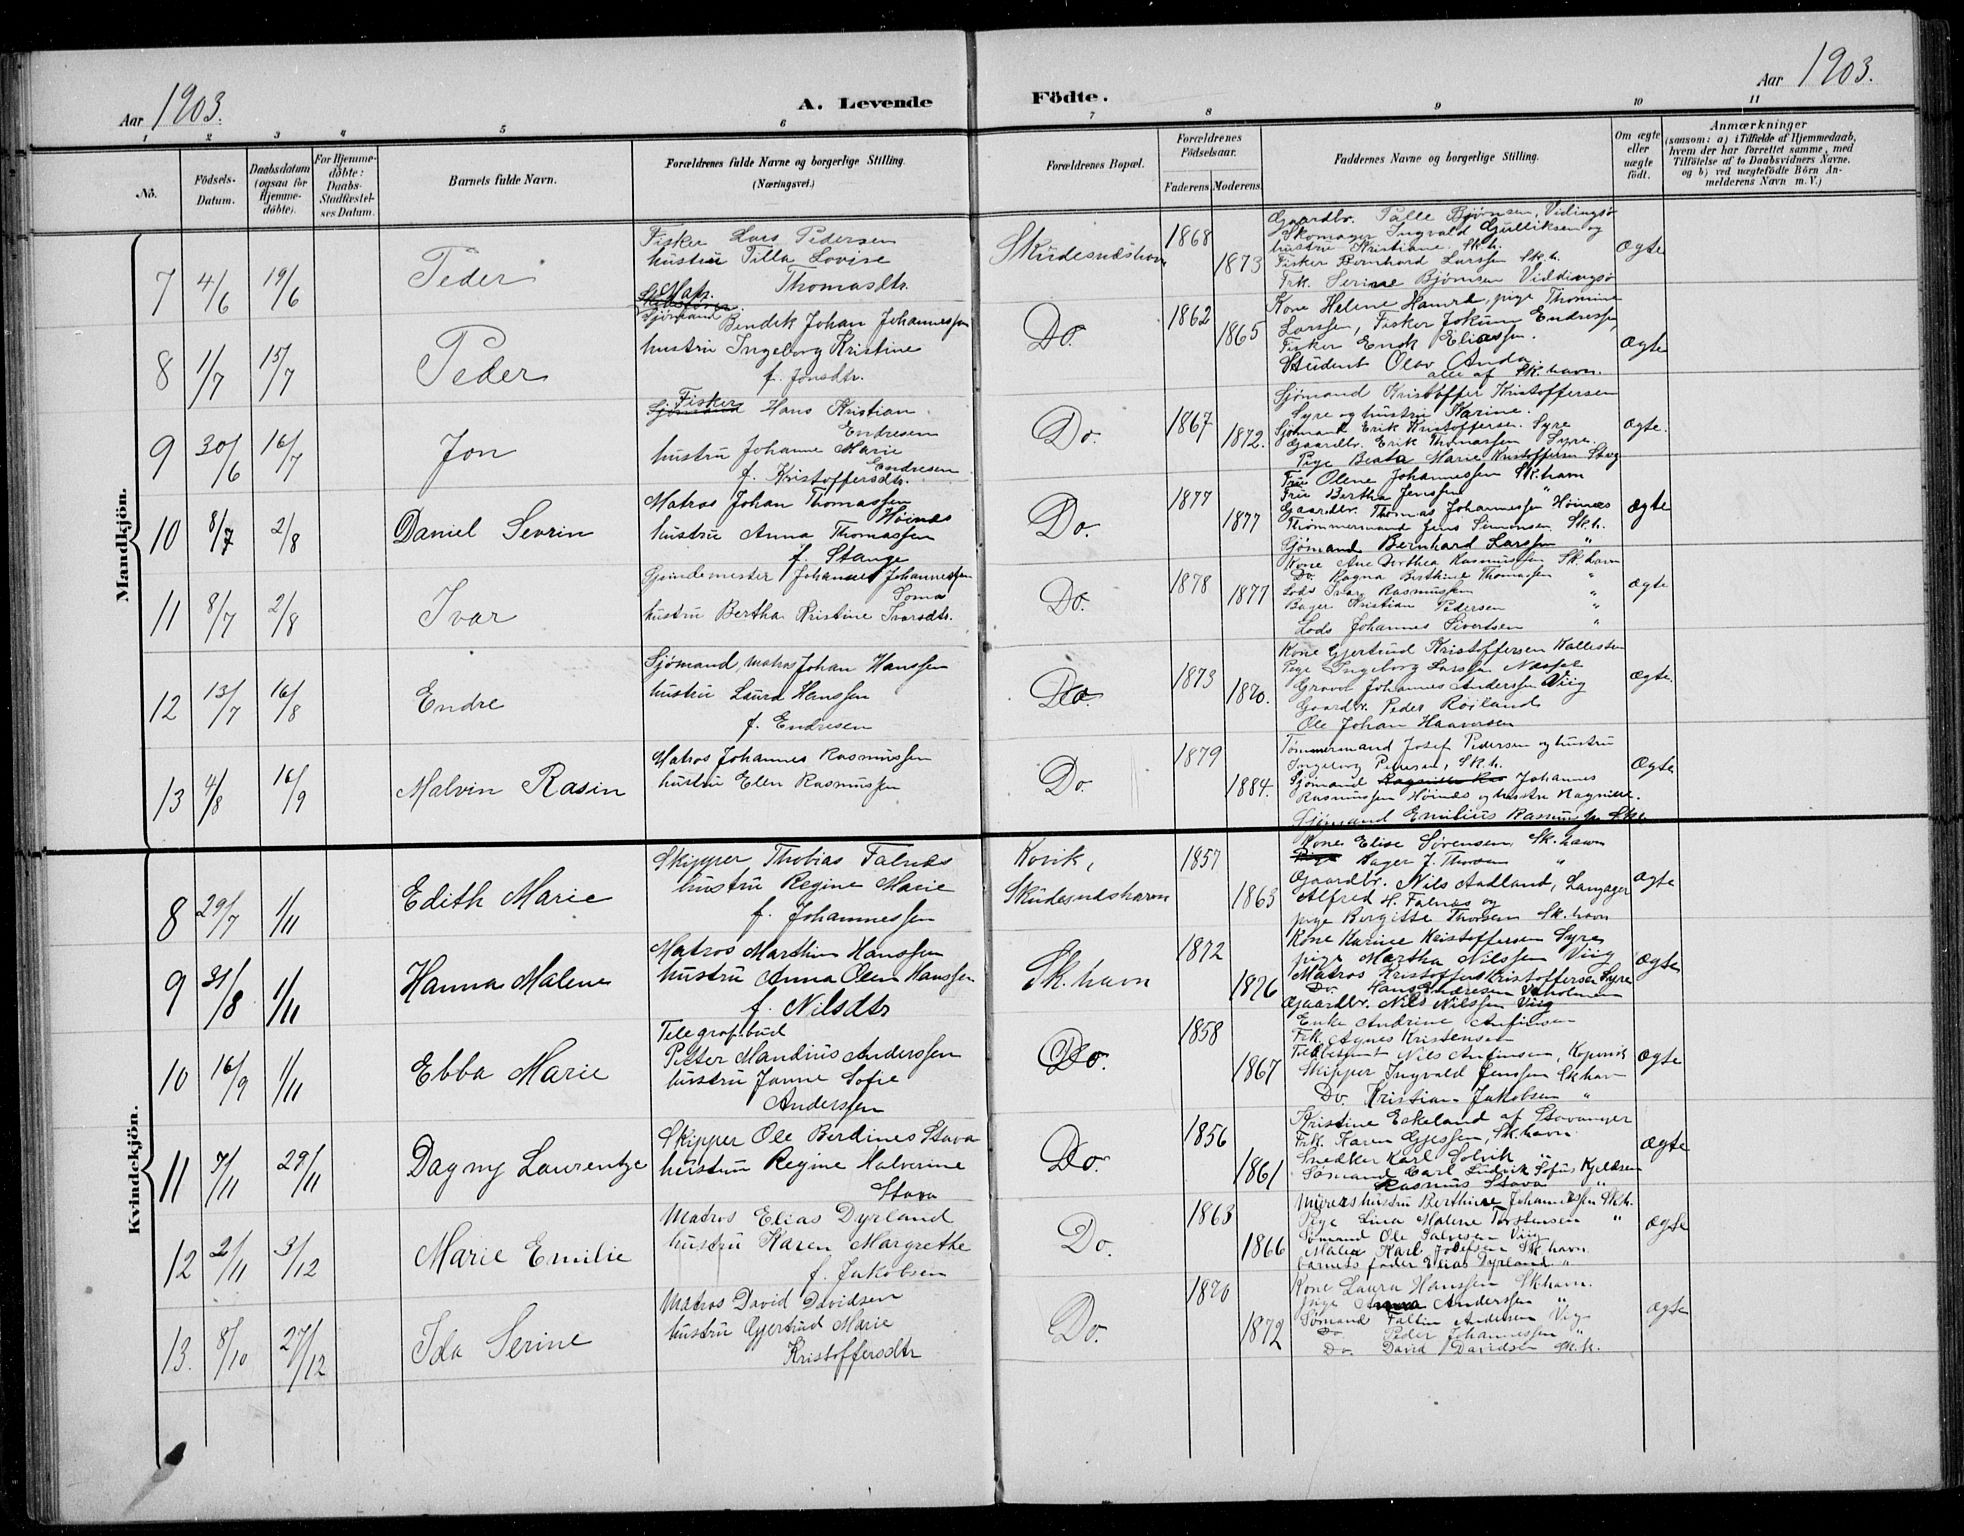 Aar 1903.
A. Levende
Födte.
Aar 1903.
1 2 3 4 5 6 7 8 9 10 11
No.
Födsels-Datum.
Daabsdatum (ogsaa för Hjemmedöbte).
For Hjemmedöbte: Daabs-Stadfestelses Datum.
Barnets fulde Navn.
Forældrenes fulde Navne og borgerlige Stilling. (Næringsvei.)
Forældrenes Bopæl.
Forældrenes Födselsaar.
Faderens. Moderens.
Faddernes Navne og borgerlige Stilling.
Om ægte eller uægte födt.
Anmærkninger
(saasom: a) i Tilfælde af Hjemmedaab, hvem der har forrettet samme, med Tilföielse af to Daabsvidners Navne. og b) ved uægtefödte Börn Anmelderens Navn m. V.)
Mandkjön.
7 4/6 19/6 Peder
Fisker Lars Pedersen
hustru Tilla Lovise
Thomasdtr.
Skudesneshavn 1868 1873
Gaardbr. Palle Bjørnsen, Vidingsø
Skomager Ingvald Gulliksen og
hustru Kristiane. Sk.h.
Fisker Bernhard Larssen Sk.h.
Frk. Serine Bjørnsen Viddingsø
Ægte
8 1/7 15/7 Peder
Matr.
Sjømand Bendik Johan Johannessen
hustru Ingeborg Kristine
f. Jonsdtr.
Do. 1862 1865
Kone Helene Hamre, pige Thomine
Larssen, Fisker Jokum Endressen,
Fisker Enok Eliassen.
Student Olav Anda.
alle af Sk.havn.
Ægte
9 30/6 16/7 Jon
Fisker
Sjømand Hans Kristian
Endresen
hustru Johanne Marie
Endresen
f. Kristoffersdtr.
Do. 1867 1872.
Sjømand Kristoffer Kristoffersen
Syre og hustru Karine.
Sjømand Erik Kristoffersen. Syre
Gaardbr. Erik Thomassen Syre.
Pige Beata Marie Kristoffersen Stag
Ægte.
10 8/7 2/8 Daniel Sevrin
Matros Johan Thomassen
Høines
hustru Anna Thomassen
f. Stange
Do. 1877 1877
Fru Olene Johannessen Sk.havn
Fru Bertha Jenssen "
Gaardbr. Thomas Johannessen Høines
Thømmermand Jens Simonsen Sk.h.
Sjømand Bernhard Larssen "
Ægte
11 8/7 2/8 Ivar
Johannes Johannessen
Soma
hustru Bertha Kristine Ivarsdtr.
Do. 1878 1877
Kone Ane Dorthea Rasmussen Sk.havn
Do. Ragna Birthine Thomassen "
Lods Ivar Rasmussen "
Bager Kristian Pedersen "
Lods Johannes Sivertsen "
Ægte
12 13/7 16/8 Endre
Sjømand, Matros Johan Hanssen
hustru Laura Hanssen
f. Endresen
Do. 1873 1870.
Kone Gjertrud Kristoffersen Kallesten
Pige Ingeborg Larssen
Johannes Anderssen Viig
Gaardbr. Peder Røiland
Ole Johan Haaversen
Ægte.
13 4/8 16/9 Malvin Rasin
Matros Johannes Rasmussen
hustru Elen Rasmussen
Do. 1879 1884.
Tømmermand Josef Pedersen og hustru
Ingeborg Pedersen, Sk.h.
Sjømand Johannes
Rasmussen Høines og hustru Ragnille.
Sjømand Emilius Rasmussen
Ægte
Kvindekjön.
8 29/7 1/11 Edith Marie
Skipper Thobias Falnes
hustru Regine Marie
f. Johannessen
Kovik,
Skudesneshavn 1857 1863
Kone Elise Sørensen, Sk.havn
Bager J. Thorsen "
Gaardbr. Nils Aadland, Langager
Alfred H. Falnes og
pige Bergitte Thorsen Sk.havn
Ægte
9 31/8 1/11 Hanna Malene
Matros Marthin Hanssen
hustru Anna Olen Hanssen
f. Nilsdtr
Sk.havn 1872 1876
Kone Karine Kristoffersen Syre
pige Martha Nilssen Viig
Matros Kristoffer Kristoffersen Syre
Do.
Gaardbr. Nils Nilssen Viig
Ægte
10 16/9 1/11 Ebba Marie
Telegrafbud
Petter Mandius Anderssen
hustru Janne Sofie
Anderssen
Do. 1858 1867
Enke Andrine Anfinsen
Frk. Agnes Kristensen
Toldbetjent Nils Anfinsen, Kopervik
Skipper Ingvald Jenssen Sk.havn
Do. Kristian Jakobsen "
Ægte
11 7/11 29/11 Dagny Laurentze
Skipper Ole Berdines Stava
hustru Regine Malverine
Stava
Do. 1856 1861
Kristine Eskeland af Stavanger
Frk. Karen Gjessen, Sk.havn
Snedker Karl Solvik "
Sømand Carl Ludvik Sofus Kjeldsen
Rasmus Stava "
Ægte
12 2/11 3/12 Marie Emilie
Matros Elias Dyrland
hustru Karen Margrethe
f. Jakobsen
Do. 1863 1866
Murers hustru Berthine Johannessen Sk.h.
Pige Lina Malene Torstensen "
Sømand Ole Salvesen Viig
Maler Karl Josefsen Sk.havn
barnets fader Elias Dyrland "
Ægte
13. 8/10 27/12 Ida Serine
Matros David Davidsen
hustru Gjertrud Marie
Kristoffersdtr
Do. 1870 1872
Kone Laura Hanssen Sk.havn.
pige Anna Anderssen "
Sømand Faltin Andersen Vig
Do. Peder Johannessen "
Do. David Davidsen Sk.h.
Ægte